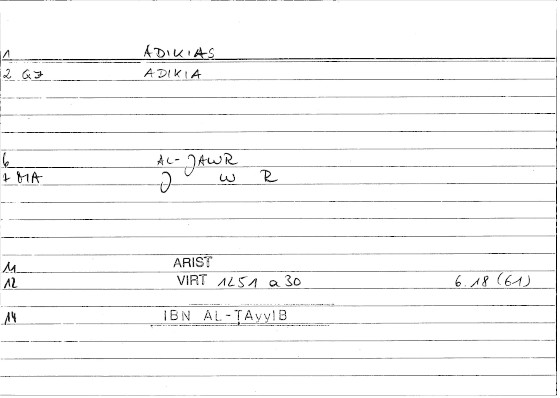 1 ADIKIAS
2 GJ ADIKIA
6 AL-JAWR
7 MA J W R
11 ARIST
12 VIRT 1251 a 30 6.18 (61)
14 IBN AL-ṬAyyIB